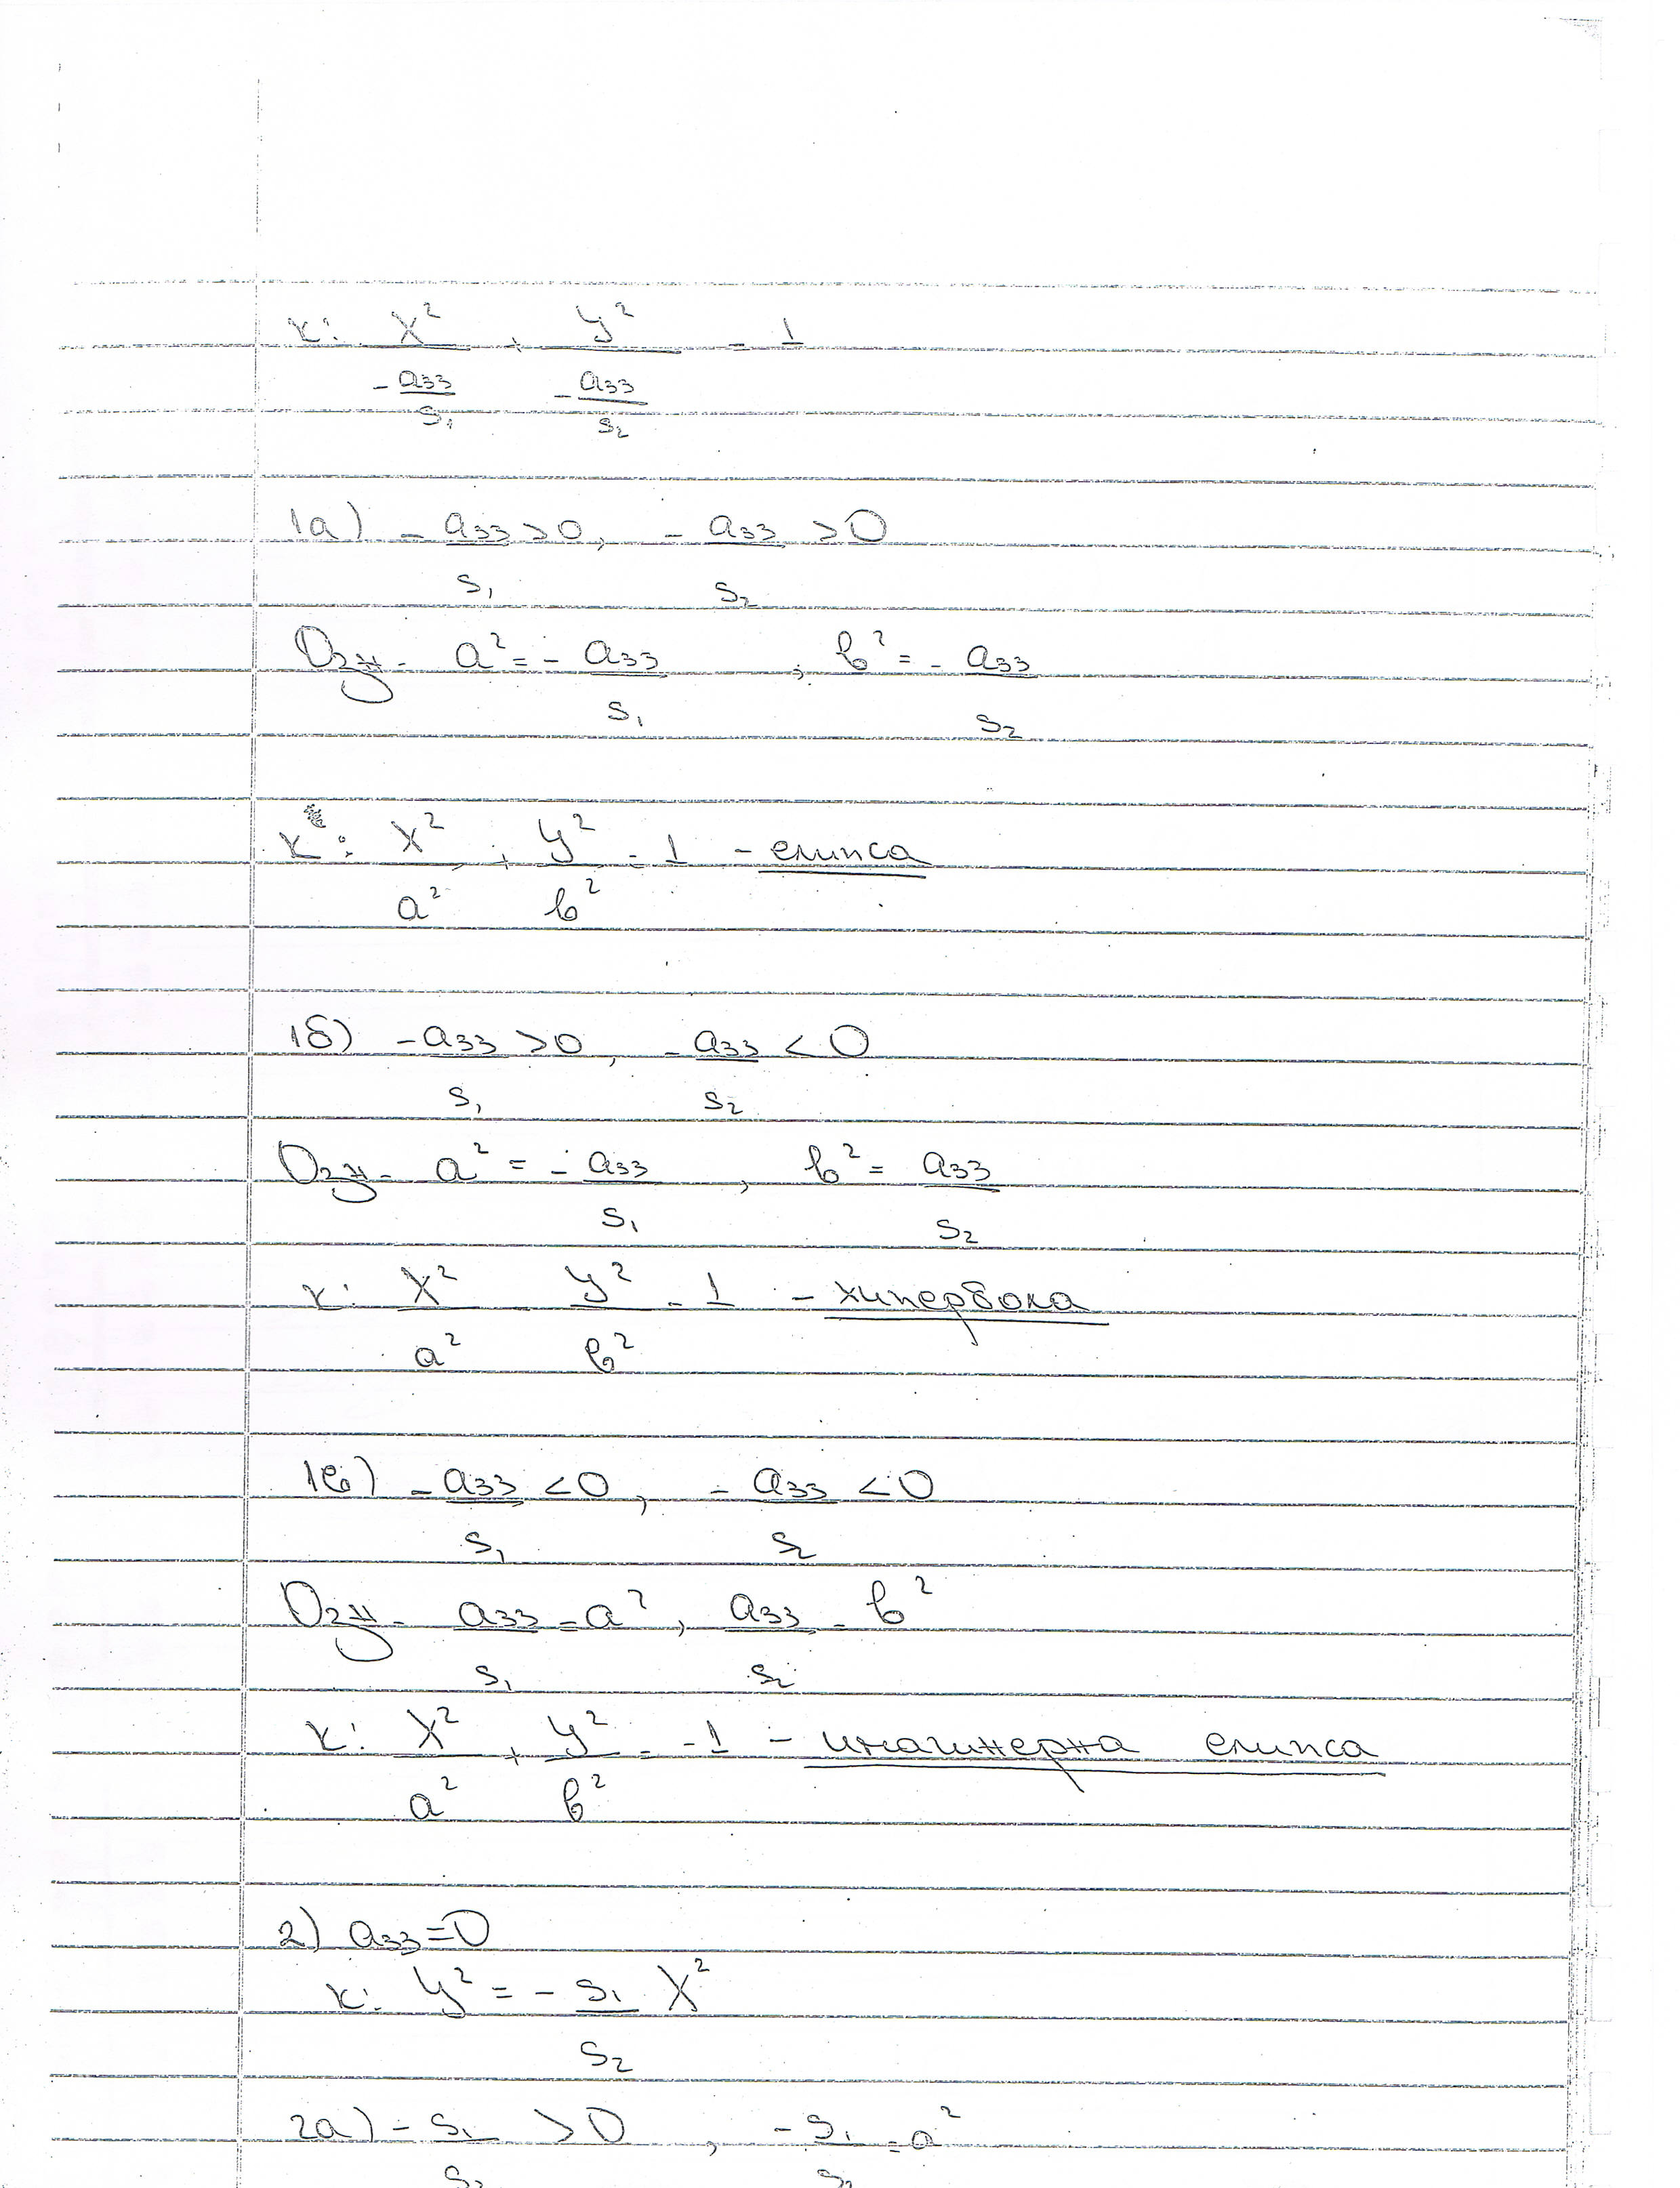 К: X²/(-a₃₃/s₁) + y²/(-a₃₃/s₂) = 1
1а) -a₃₃/s₁ > 0, -a₃₃/s₂ > 0
Озн. a² = -a₃₃/s₁ ; b² = -a₃₃/s₂
К: X²/a² + y²/b² = 1 - елипса
1б) -a₃₃/s₁ > 0, -a₃₃/s₂ < 0
Озн. a² = -a₃₃/s₁, b² = a₃₃/s₂
К: X²/a² - y²/b² = 1 - хипербола
1в) -a₃₃/s₁ < 0, -a₃₃/s₂ < 0
Озн. a₃₃/s₁ = a², a₃₃/s₂ = b²
К: X²/a² + y²/b² = -1 - имагинерна елипса
2) a₃₃ = 0
К: y² = -s₁/s₂ X²
2а) -s₁/s₂ > 0, -s₁/s₂ = a²